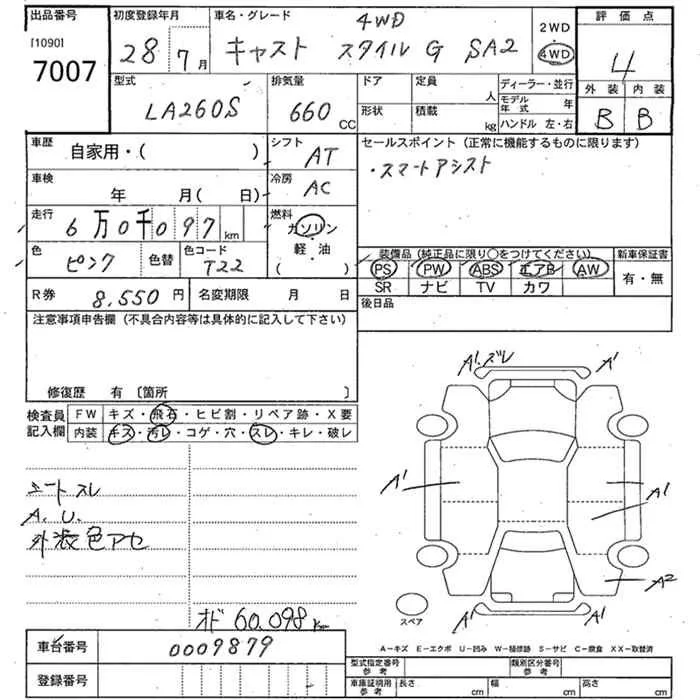 出品番号 初度登録年月 車名・グレード 4WD 2WD 評価点
[1090] 28年 7月 キャスト スタイルG SA2 4WD 4
7007
型式 排気量 ドア 定員 人 ディーラー・並行 外装 内装
LA260S 660 CC 形状 積載 kg モデル年式 年 B B
ハンドル 左・右
車歴 自家用・( ) シフト AT セールスポイント (正常に機能するものに限ります)
車検 年 月(日) 冷房 AC ・スマートアシスト
走行 6万0千097 km 燃料 ガソリン・軽油 ( )
色 ピンク 色替 色コード T22 装備品 (純正品に限り○をつけてください) 新車保証書
PS PW ABS エアB AW 有・無
SR ナビ TV カワ
R券 8,550 円 名変期限 月 日 後日品
注意事項申告欄 (不具合内容等は具体的に記入して下さい)
修復歴 有 〔箇所 〕
検査員記入欄 FW キズ・飛石・ヒビ割・リペア跡・X要
内装 キズ・汚レ・コゲ・穴・スレ・キレ・破レ
A'.ズレ A'
A' A'
A2
A' A'
スペア
シートスレ
A.U.
外装色アセ
オド 60,098 km
A-キズ E-エクボ U-凹み W-補修跡 S-サビ C-腐食 XX-取替済
車台番号 0009879
登録番号
型式指定番号 参考 類別区分番号 参考
車庫証明用 参考 長さ cm 幅 cm 高さ cm